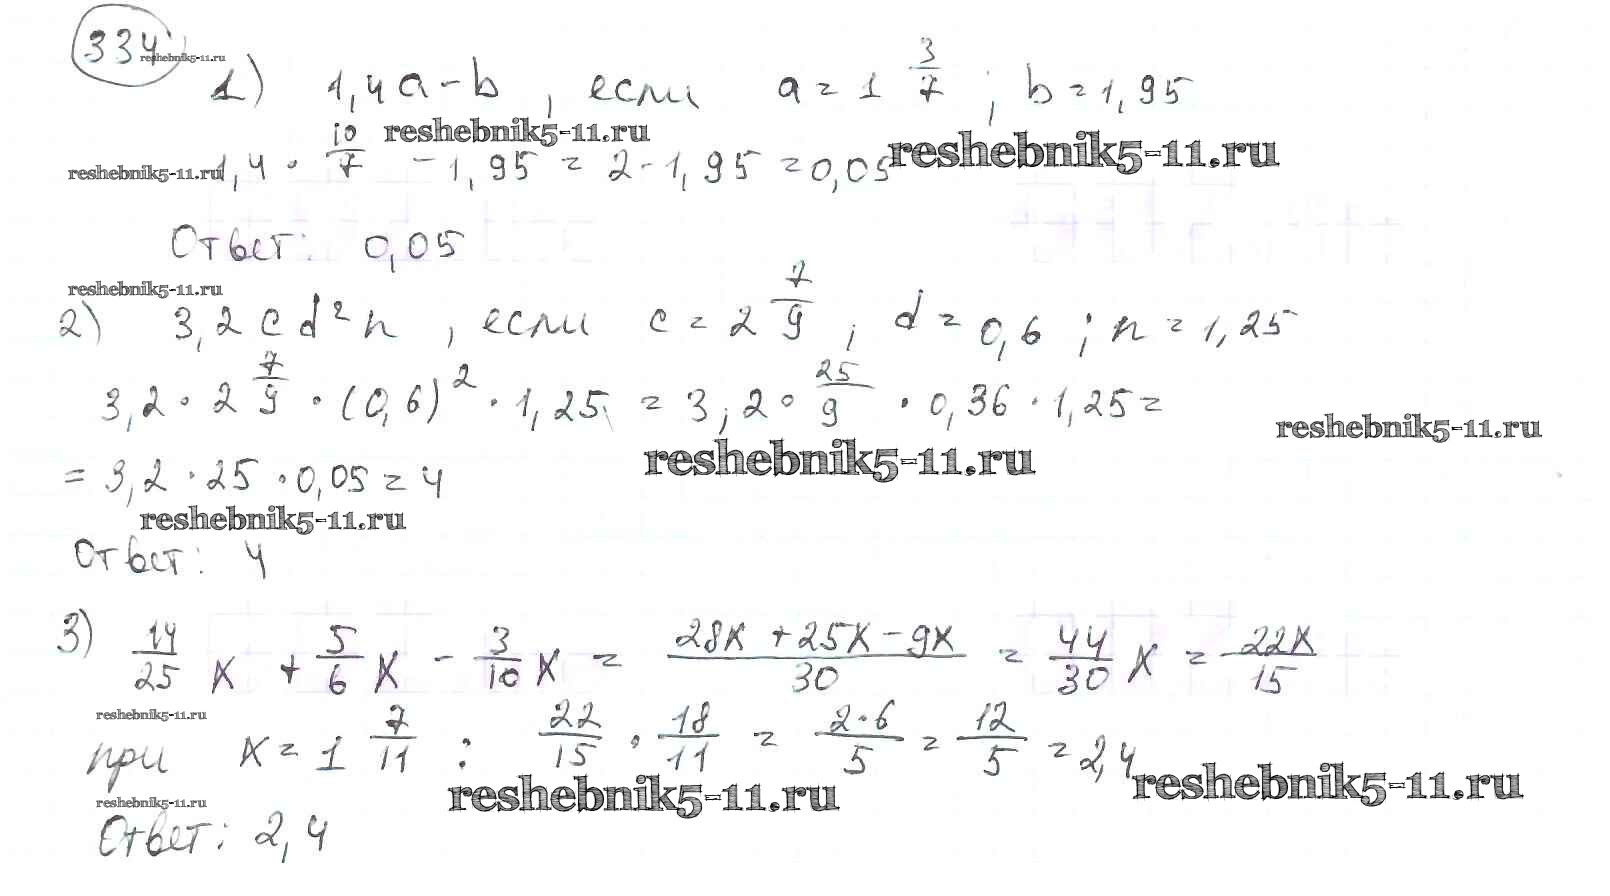 334 reshebnik5-11.ru
1) 1,4a-b, если a=1 3/7; b=1,95
reshebnik5-11.ru reshebnik5-11.ru
reshebnik5-11.ru 1,4 · 10/7 - 1,95 = 2-1,95 = 0,05
Ответ: 0,05
reshebnik5-11.ru
2) 3,2cd²n, если c=2 7/9; d=0,6; n=1,25
3,2 · 2 7/9 · (0,6)² · 1,25 = 3,2 · 25/9 · 0,36 · 1,25 =
reshebnik5-11.ru
reshebnik5-11.ru
= 3,2 · 25 · 0,05 = 4
reshebnik5-11.ru
Ответ: 4
3) 14/25 x + 5/6 x - 3/10 x = (28x + 25x - 9x)/30 = 44/30 x = 22x/15
reshebnik5-11.ru
при x = 1 7/11 : 22/15 · 18/11 = 2·6/5 = 12/5 = 2,4
reshebnik5-11.ru reshebnik5-11.ru
reshebnik5-11.ru
Ответ: 2,4